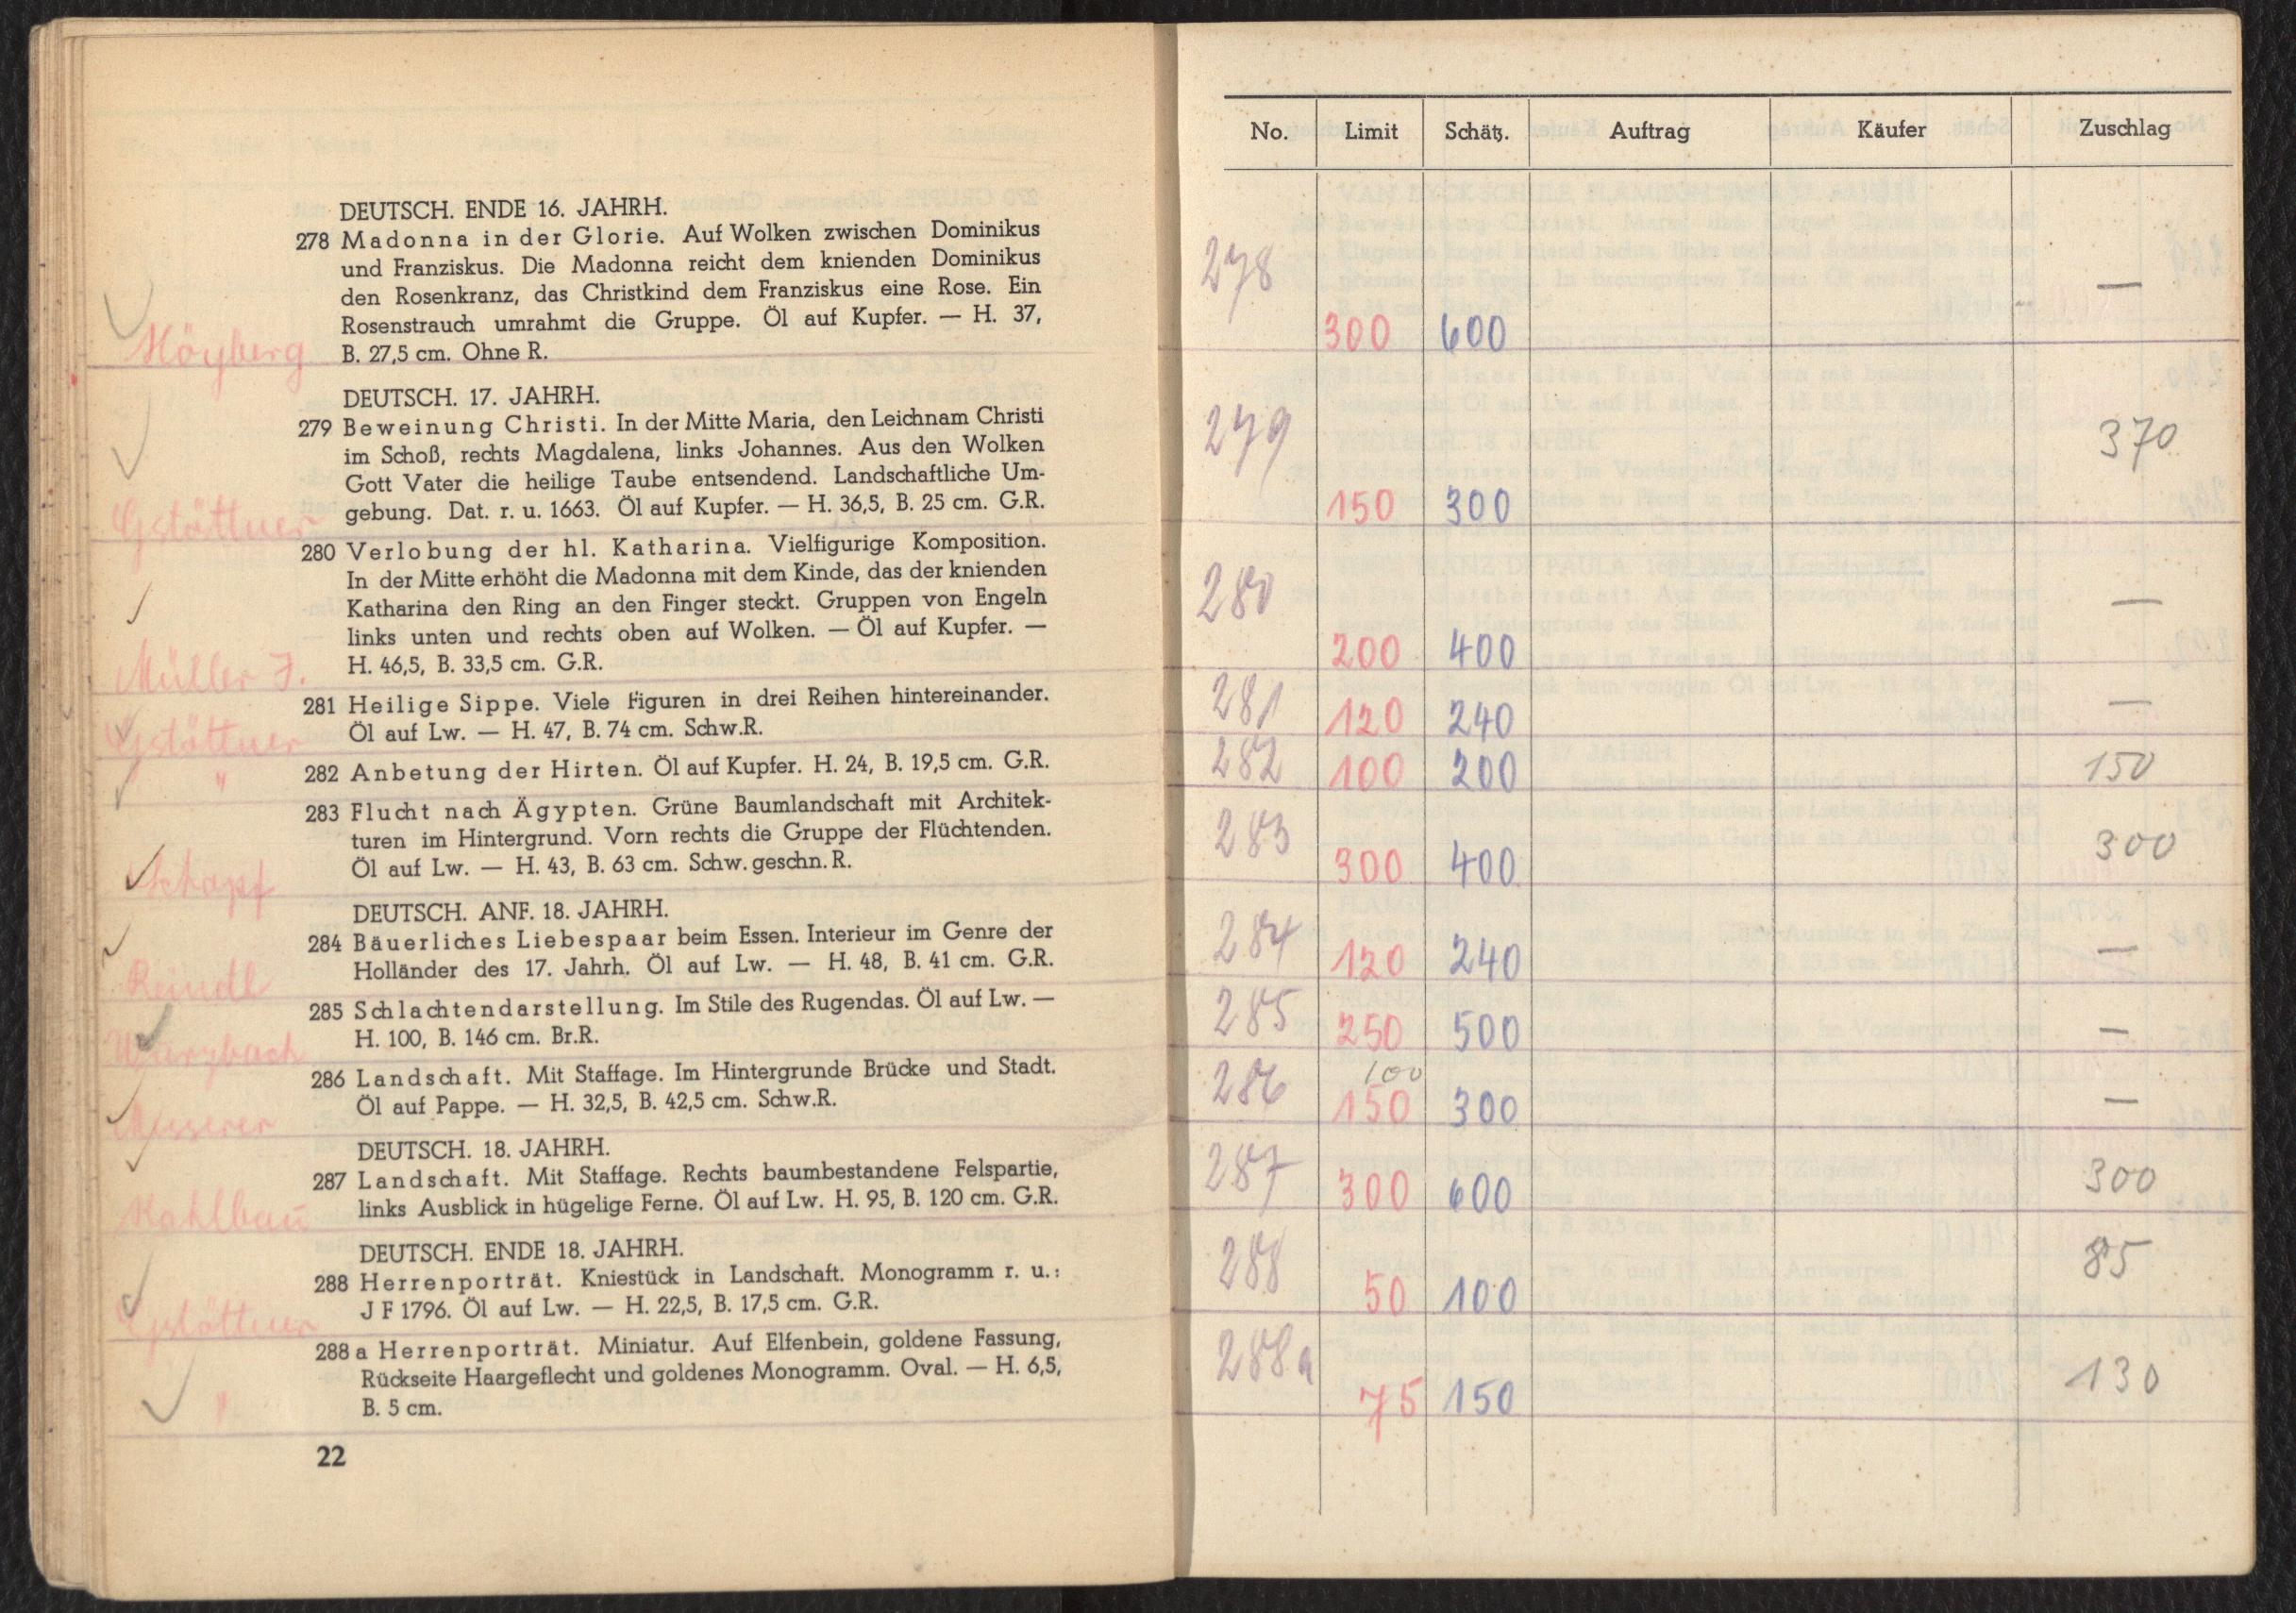 DEUTSCH. ENDE 16. JAHRH.
278 Madonna in der Glorie. Auf Wolken zwischen Dominikus
und Franziskus. Die Madonna reicht dem knienden Dominikus
den Rosenkranz, das Christkind dem Franziskus eine Rose. Ein
Rosenstrauch umrahmt die Gruppe. Öl auf Kupfer. — H. 37,
Höyberg B. 27,5 cm. Ohne R.
DEUTSCH. 17. JAHRH.
279 Beweinung Christi. In der Mitte Maria, den Leichnam Christi
im Schoß, rechts Magdalena, links Johannes. Aus den Wolken
Gott Vater die heilige Taube entsendend. Landschaftliche Um-
Gstöttner gebung. Dat. r. u. 1663. Öl auf Kupfer. — H. 36,5, B. 25 cm. G.R.
280 Verlobung der hl. Katharina. Vielfigurige Komposition.
In der Mitte erhöht die Madonna mit dem Kinde, das der knienden
Katharina den Ring an den Finger steckt. Gruppen von Engeln
links unten und rechts oben auf Wolken. — Öl auf Kupfer. —
Müller J. H. 46,5, B. 33,5 cm. G.R.
281 Heilige Sippe. Viele Figuren in drei Reihen hintereinander.
Gstöttner Öl auf Lw. — H. 47, B. 74 cm. Schw.R.
" 282 Anbetung der Hirten. Öl auf Kupfer. H. 24, B. 19,5 cm. G.R.
283 Flucht nach Ägypten. Grüne Baumlandschaft mit Architek-
turen im Hintergrund. Vorn rechts die Gruppe der Flüchtenden.
Öl auf Lw. — H. 43, B. 63 cm. Schw. geschn. R.
DEUTSCH. ANF. 18. JAHRH.
284 Bäuerliches Liebespaar beim Essen. Interieur im Genre der
Reindl Holländer des 17. Jahrh. Öl auf Lw. — H. 48, B. 41 cm. G.R.
285 Schlachtendarstellung. Im Stile des Rugendas. Öl auf Lw. —
Wurzbach H. 100, B. 146 cm. Br.R.
286 Landschaft. Mit Staffage. Im Hintergrunde Brücke und Stadt.
Öl auf Pappe. — H. 32,5, B. 42,5 cm. Schw.R.
DEUTSCH. 18. JAHRH.
287 Landschaft. Mit Staffage. Rechts baumbestandene Felspartie,
links Ausblick in hügelige Ferne. Öl auf Lw. H. 95, B. 120 cm. G.R.
DEUTSCH. ENDE 18. JAHRH.
288 Herrenporträt. Kniestück in Landschaft. Monogramm r. u.:
Gstöttner J F 1796. Öl auf Lw. — H. 22,5, B. 17,5 cm. G.R.
288 a Herrenporträt. Miniatur. Auf Elfenbein, goldene Fassung,
Rückseite Haargeflecht und goldenes Monogramm. Oval. — H. 6,5,
" B. 5 cm.
22
No. Limit Schätz. Auftrag Käufer Zuschlag
278 300 600 —
279 150 300 370
280 200 400 —
281 120 240 —
282 100 200 150
283 300 400 300
284 120 240 —
285 250 500 —
100
286 150 300 —
287 300 600 300
288 50 100 85
288a 75 150 130